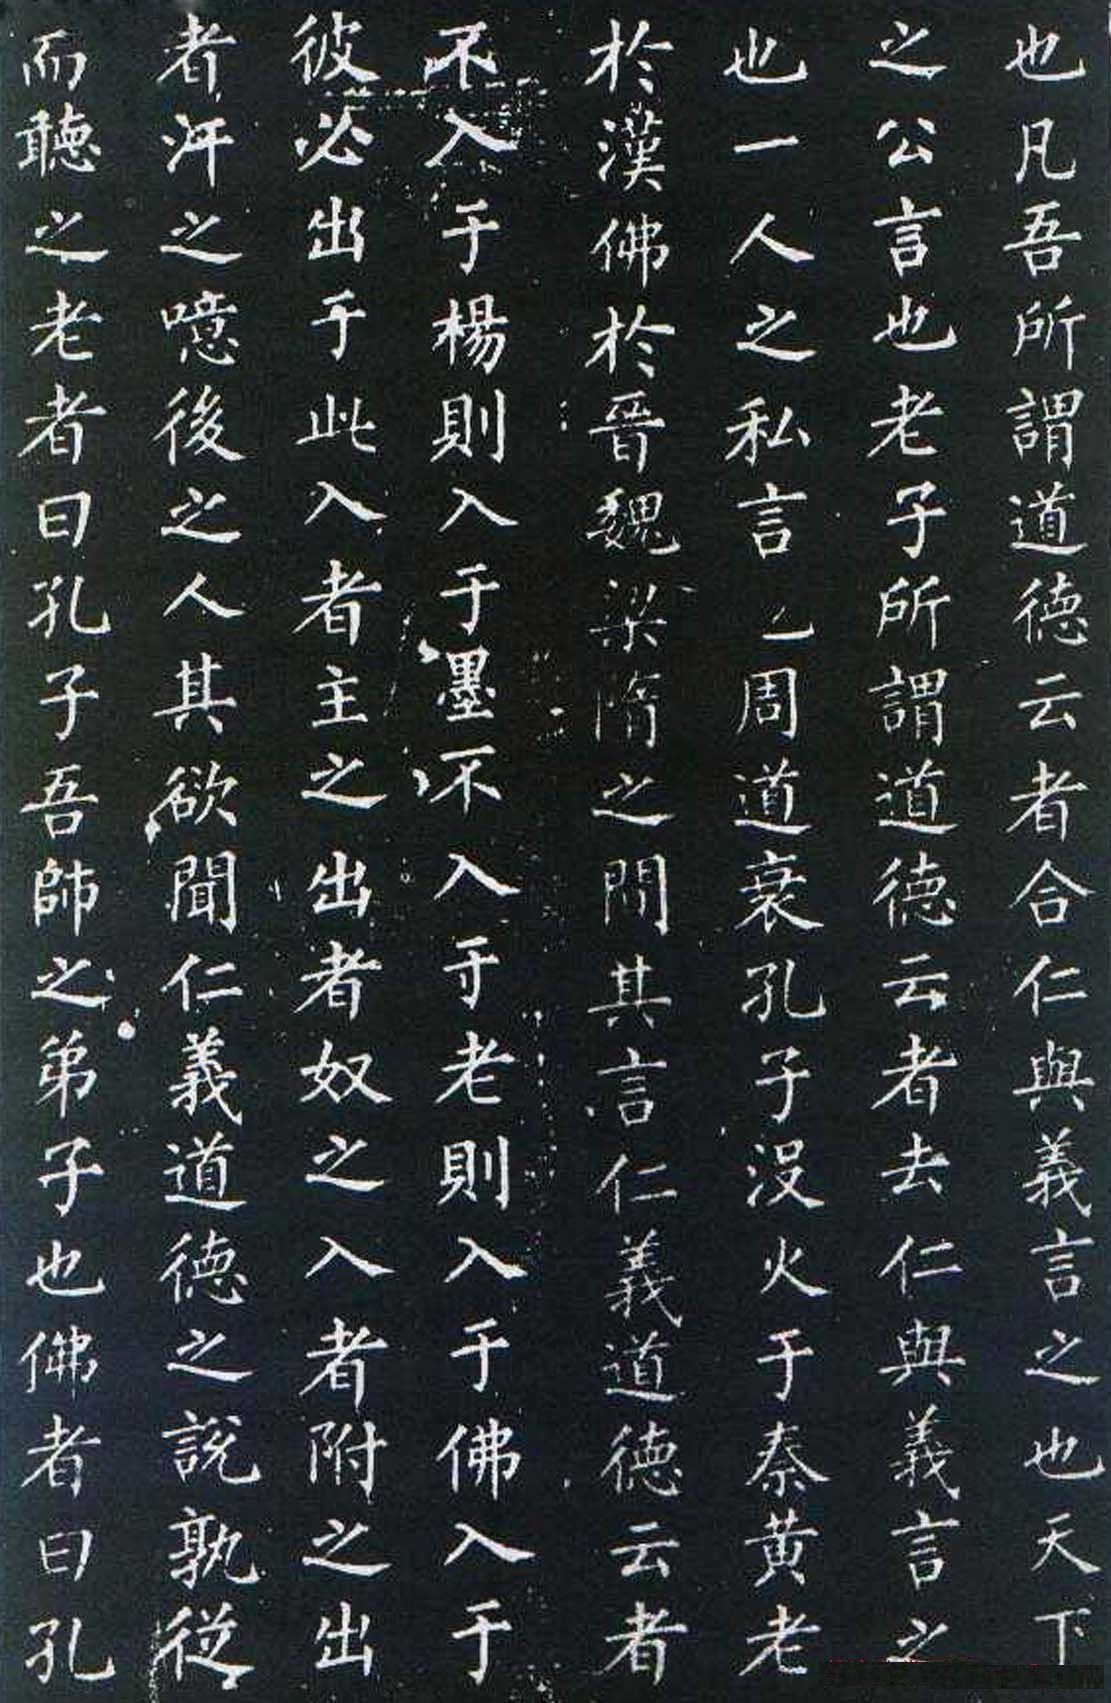 也凡吾所謂道德云者合仁與義言之也天下
之公言也老子所謂道德云者去仁與義言之
也一人之私言周道衰孔子没火于秦黄老
於漢佛於晉魏梁隋之間其言仁義道德云者
不入于楊則入于墨不入于老則入于佛入于
彼必出于此入者主之出者奴之入者附之出
者汙之噫後之人其欲聞仁義道德之說孰從
而聽之老者曰孔子吾師之弟子也佛者曰孔